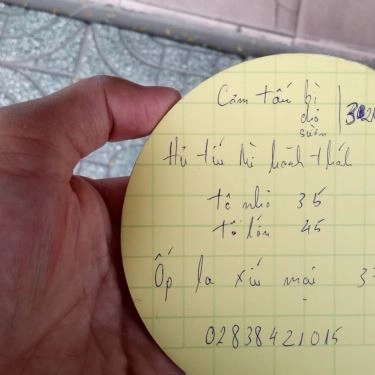 Cơm tấm bì
chả
sườn
Hủ tiếu mì hoành thánh
tô nhỏ 35
tô lớn 45
Ốp la xíu mại
02838421015